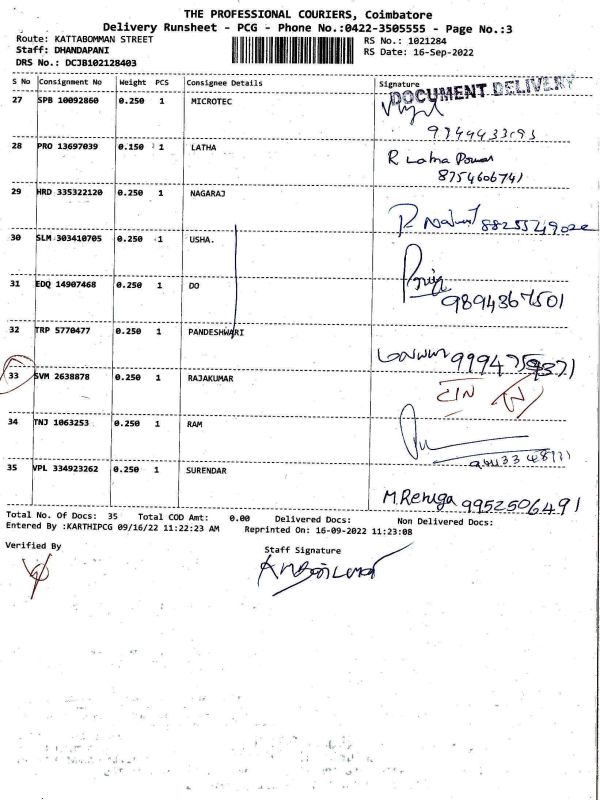 THE PROFESSIONAL COURIERS, Coimbatore
Delivery Runsheet - PCG - Phone No.:0422-3505555 - Page No.:3
Route: KATTABOMMAN STREET
RS No.: 1021284
Staff: DHANDAPANI
RS Date: 16-Sep-2022
DRS No.: DCJB102128403
S No Consignment No Weight PCS Consignee Details Signature
DOCUMENT DELIVERY
27 SPB 10092860 0.250 1 MICROTEC
28 PRO 13697039 0.150 1 LATHA
R Latha
8754606741
29 HRD 335322120 0.250 1 NAGARAJ
30 SLM 303410705 0.250 1 USHA.
31 EDQ 14907468 0.250 1 DO
9894367501
32 TRP 5770477 0.250 1 PANDESHWARI
33 SVM 2638878 0.250 1 RAJAKUMAR
34 TNJ 1063253 0.250 1 RAM
35 VPL 334923262 0.250 1 SURENDAR
M.Renuga 9952506491
Total No. Of Docs: 35 Total COD Amt: 0.00 Delivered Docs: Non Delivered Docs:
Entered By :KARTHIPCG 09/16/22 11:22:23 AM Reprinted On: 16-09-2022 11:23:08
Verified By
Staff Signature